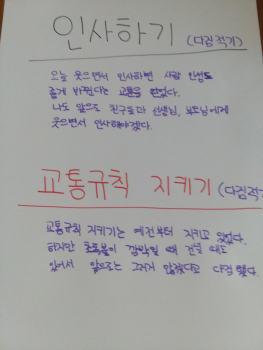 인사하기 (다짐적기)
오늘 웃으면서 인사하면 사람 인생도
좋게 바뀐다는 교훈을 얻었다.
나도 앞으로 친구들과 선생님, 부모님에게
웃으면서 인사해야겠다.
교통규칙 지키기 (다짐적
교통규칙 지키기는 예전부터 지키고 있었다.
하지만 초록불이 깜박일 때 건널 때도
있어서 앞으로는 그러지 않겠다고 다짐했다.